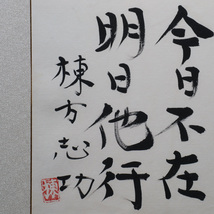 今日不在
明日他行
棟方志功
棟